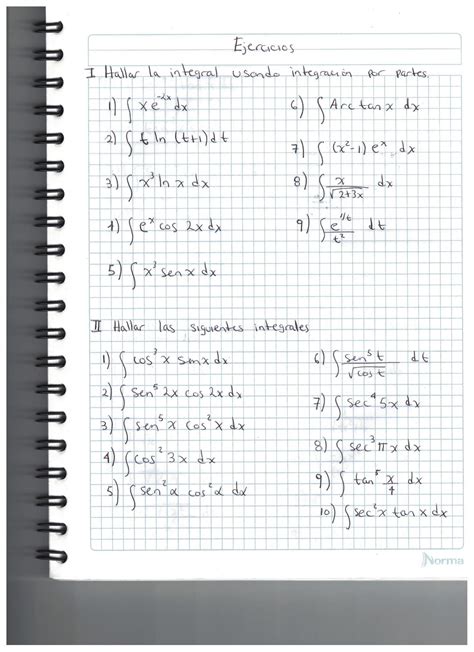 Ejercicios
I Hallar la integral usando integración por partes.
1) ∫ x e^-2x dx
2) ∫ t ln (t+1) dt
3) ∫ x³ ln x dx
4) ∫ e^x cos 2x dx
5) ∫ x³ sen x dx
6) ∫ Arc tan x dx
7) ∫ (x²-1) e^x dx
8) ∫ x/√(2+3x) dx
9) ∫ e^(1/t)/t² dt
II Hallar las siguientes integrales
1) ∫ cos³ x sen x dx
2) ∫ sen⁵ 2x cos 2x dx
3) ∫ sen⁵ x cos² x dx
4) ∫ cos² 3x dx
5) ∫ sen² α cos² α dα
6) ∫ sen⁵ t/√(cos t) dt
7) ∫ sec⁴ 5x dx
8) ∫ sec³ πx dx
9) ∫ tan⁵ x/4 dx
10) ∫ sec² x tan x dx
Norma